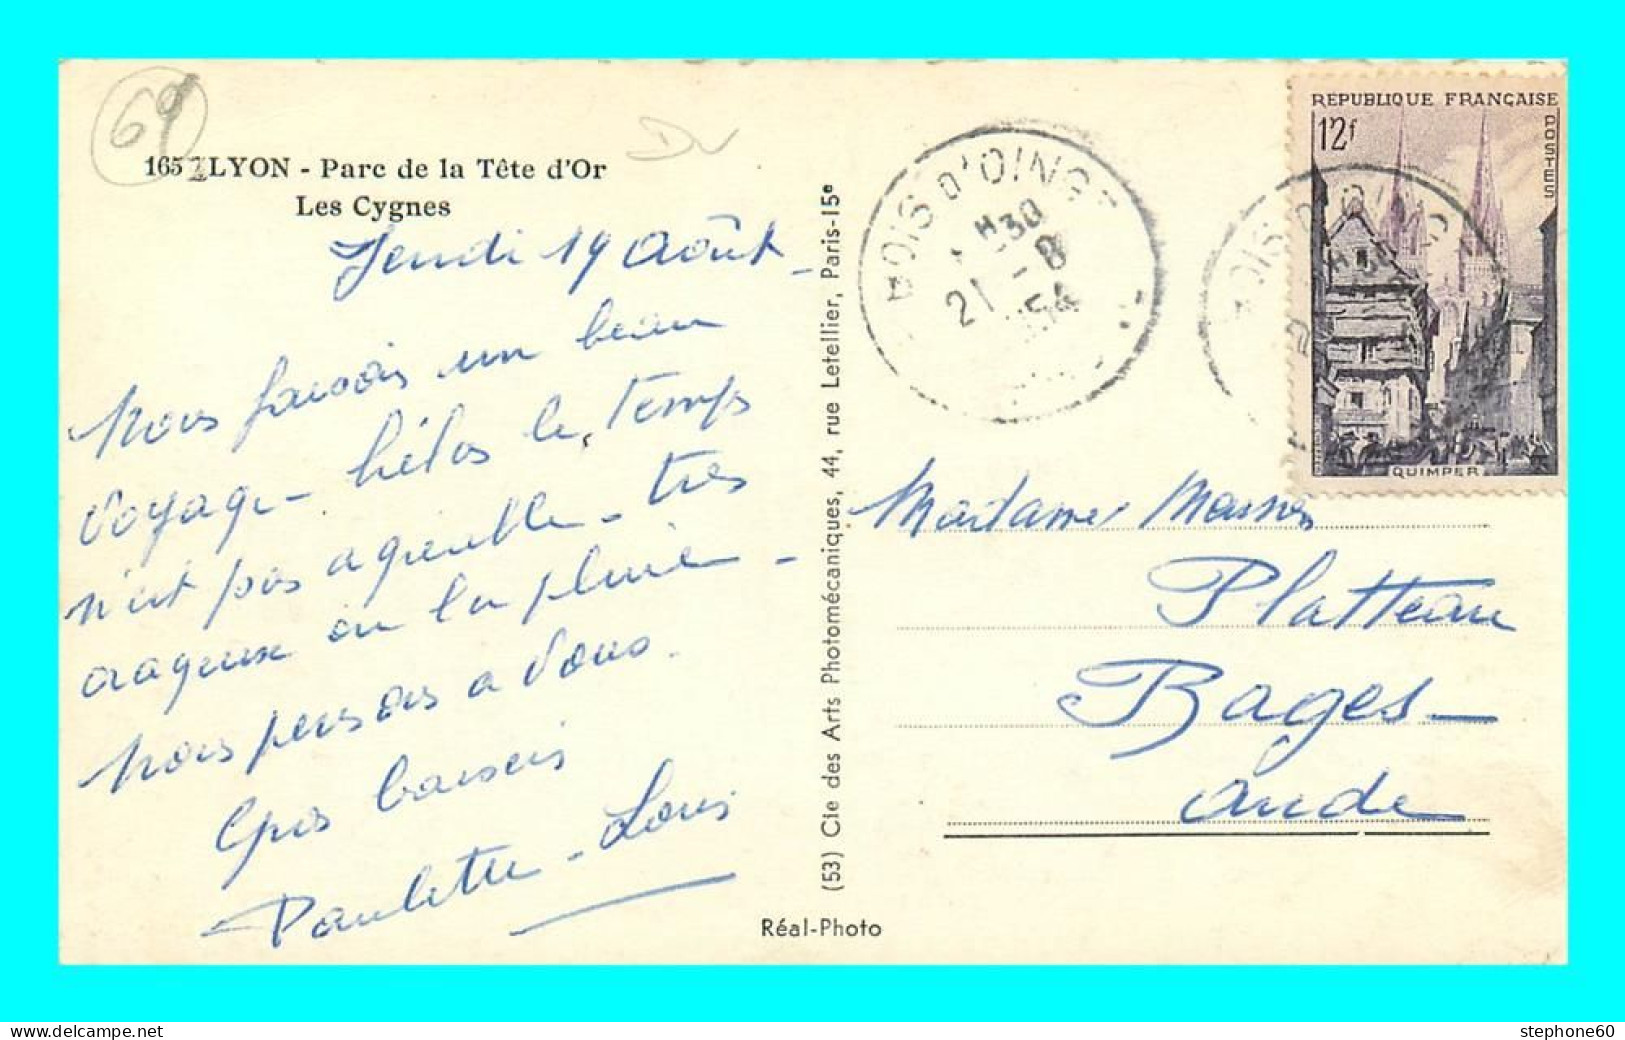 69
DV
165 LYON - Parc de la Tête d'Or
Les Cygnes
Jeudi 19 Août -
Nous faisons un beau
voyage - hélas le temps
n'est pas agréable - très
orageux ou la pluie -
Nous pensons a vous.
Gros baisers
Paulette - Louis
(53) Cie des Arts Photomécaniques, 44, rue Letellier, Paris-15e
Réal-Photo
BOIS D'OINGT
H30
21 - 8
1954
REPUBLIQUE FRANÇAISE
12f
POSTES
QUIMPER
Madame
Platteau
Bages -
Aude
stephone60